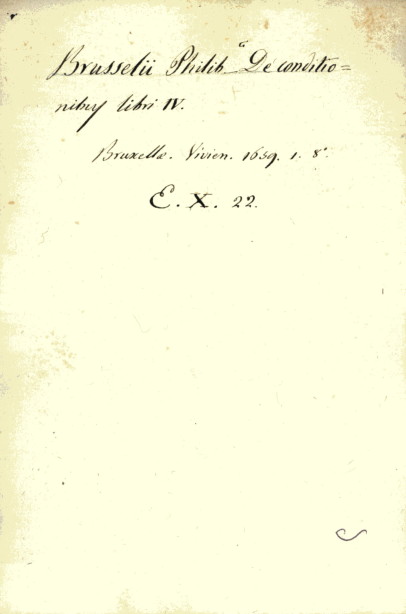 Brusselii Philib. De conditio=
nibus libri IV.
Bruxellæ. Vivien. 1659. 1. 8°.
E. X. 22.